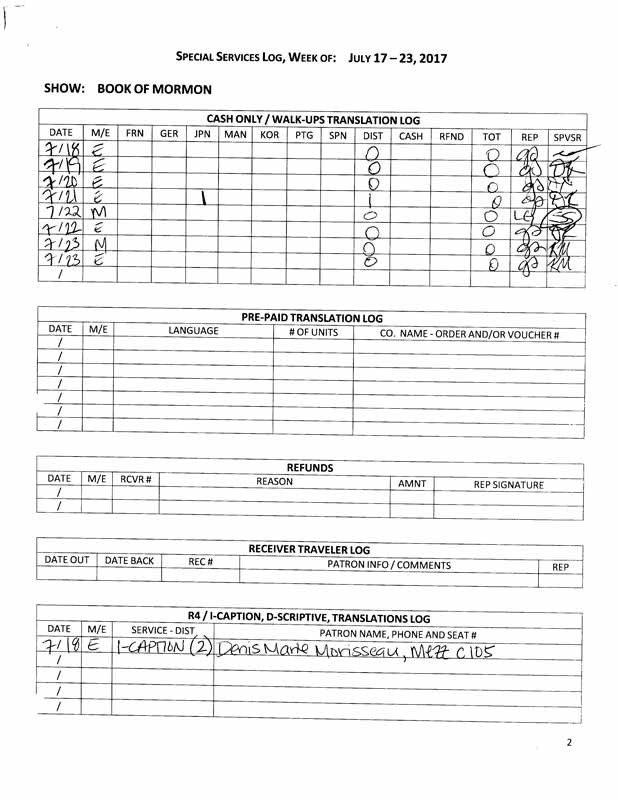 SPECIAL SERVICES LOG, WEEK OF: JULY 17 – 23, 2017
SHOW: BOOK OF MORMON
CASH ONLY / WALK-UPS TRANSLATION LOG
DATE M/E FRN GER JPN MAN KOR PTG SPN DIST CASH RFND TOT REP SPVSR
7/18 E 0 0
7/19 E 0 0
7/20 E 0 0
7/21 E 1 1 0
7/22 M 0 0
7/22 E 0 0
7/23 M 0 0 KM
7/23 E 0 0 KM
/
PRE-PAID TRANSLATION LOG
DATE M/E LANGUAGE # OF UNITS CO. NAME - ORDER AND/OR VOUCHER #
/
/
/
/
/
/
/
REFUNDS
DATE M/E RCVR # REASON AMNT REP SIGNATURE
/
/
RECEIVER TRAVELER LOG
DATE OUT DATE BACK REC # PATRON INFO / COMMENTS REP
R4 / I-CAPTION, D-SCRIPTIVE, TRANSLATIONS LOG
DATE M/E SERVICE - DIST PATRON NAME, PHONE AND SEAT #
7/18 E I-CAPTION (2) Denis Marie Morisseau, Mezz C105
/
/
/
/
2